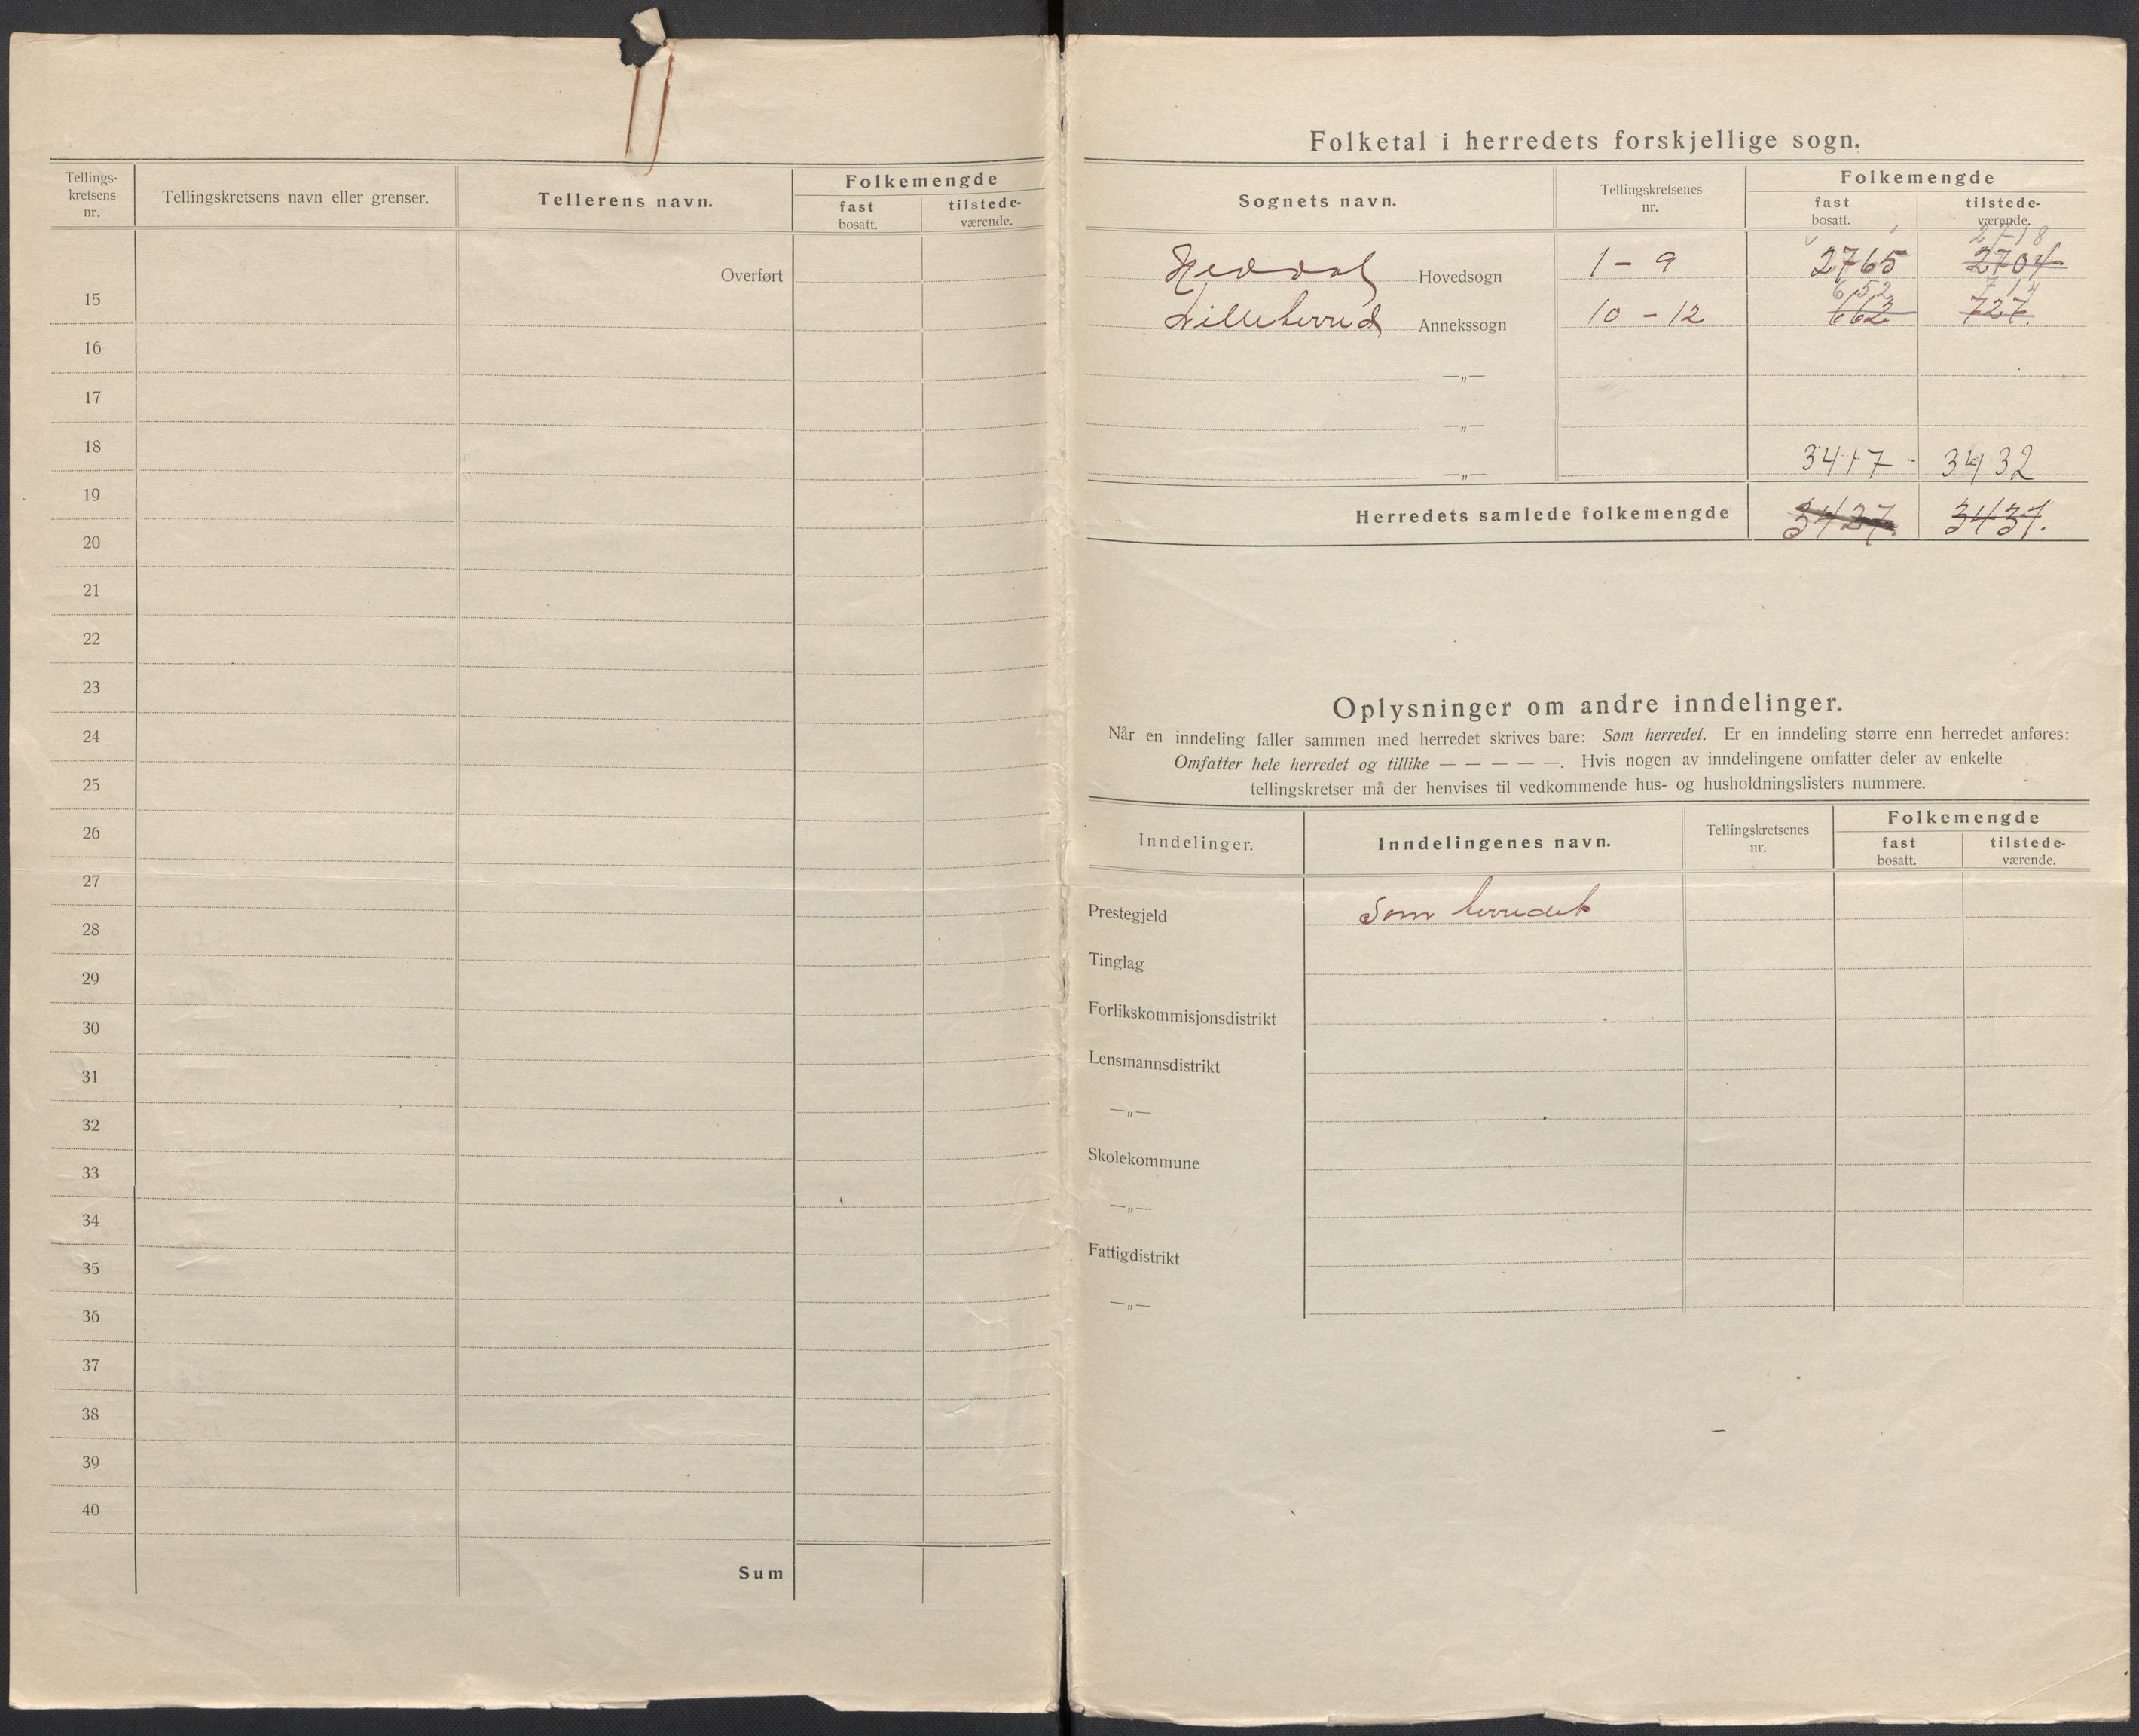 Tellings-
kretsens
nr.
Tellingskretsens navn eller grenser.
Tellerens navn.
Folkemengde
fast
bosatt.
tilstede-
værende.
Overført
15
16
17
18
19
20
21
22
23
24
25
26
27
28
29
30
31
32
33
34
35
36
37
38
39
40
Sum
Folketal i herredets forskjellige sogn.
Sognets navn.
Tellingskretsenes
nr.
Folkemengde
fast
bosatt.
tilstede-
værende.
2718
Heddal Hovedsogn 1 - 9 2765 2704
652 714
Lilleherred Annekssogn 10 - 12 662 727.
—„—
—„—
3417 - 3432
—„—
Herredets samlede folkemengde 3427. 3431.
Oplysninger om andre inndelinger.
Når en inndeling faller sammen med herredet skrives bare: Som herredet. Er en inndeling større enn herredet anføres:
Omfatter hele herredet og tillike — — — — —. Hvis nogen av inndelingene omfatter deler av enkelte
tellingskretser må der henvises til vedkommende hus- og husholdningslisters nummere.
Inndelinger.
Inndelingenes navn.
Tellingskretsenes
nr.
Folkemengde
fast
bosatt.
tilstede-
værende.
Prestegjeld Som herredet
Tinglag
Forlikskommisjonsdistrikt
Lensmannsdistrikt
—„—
Skolekommune
—„—
Fattigdistrikt
—„—